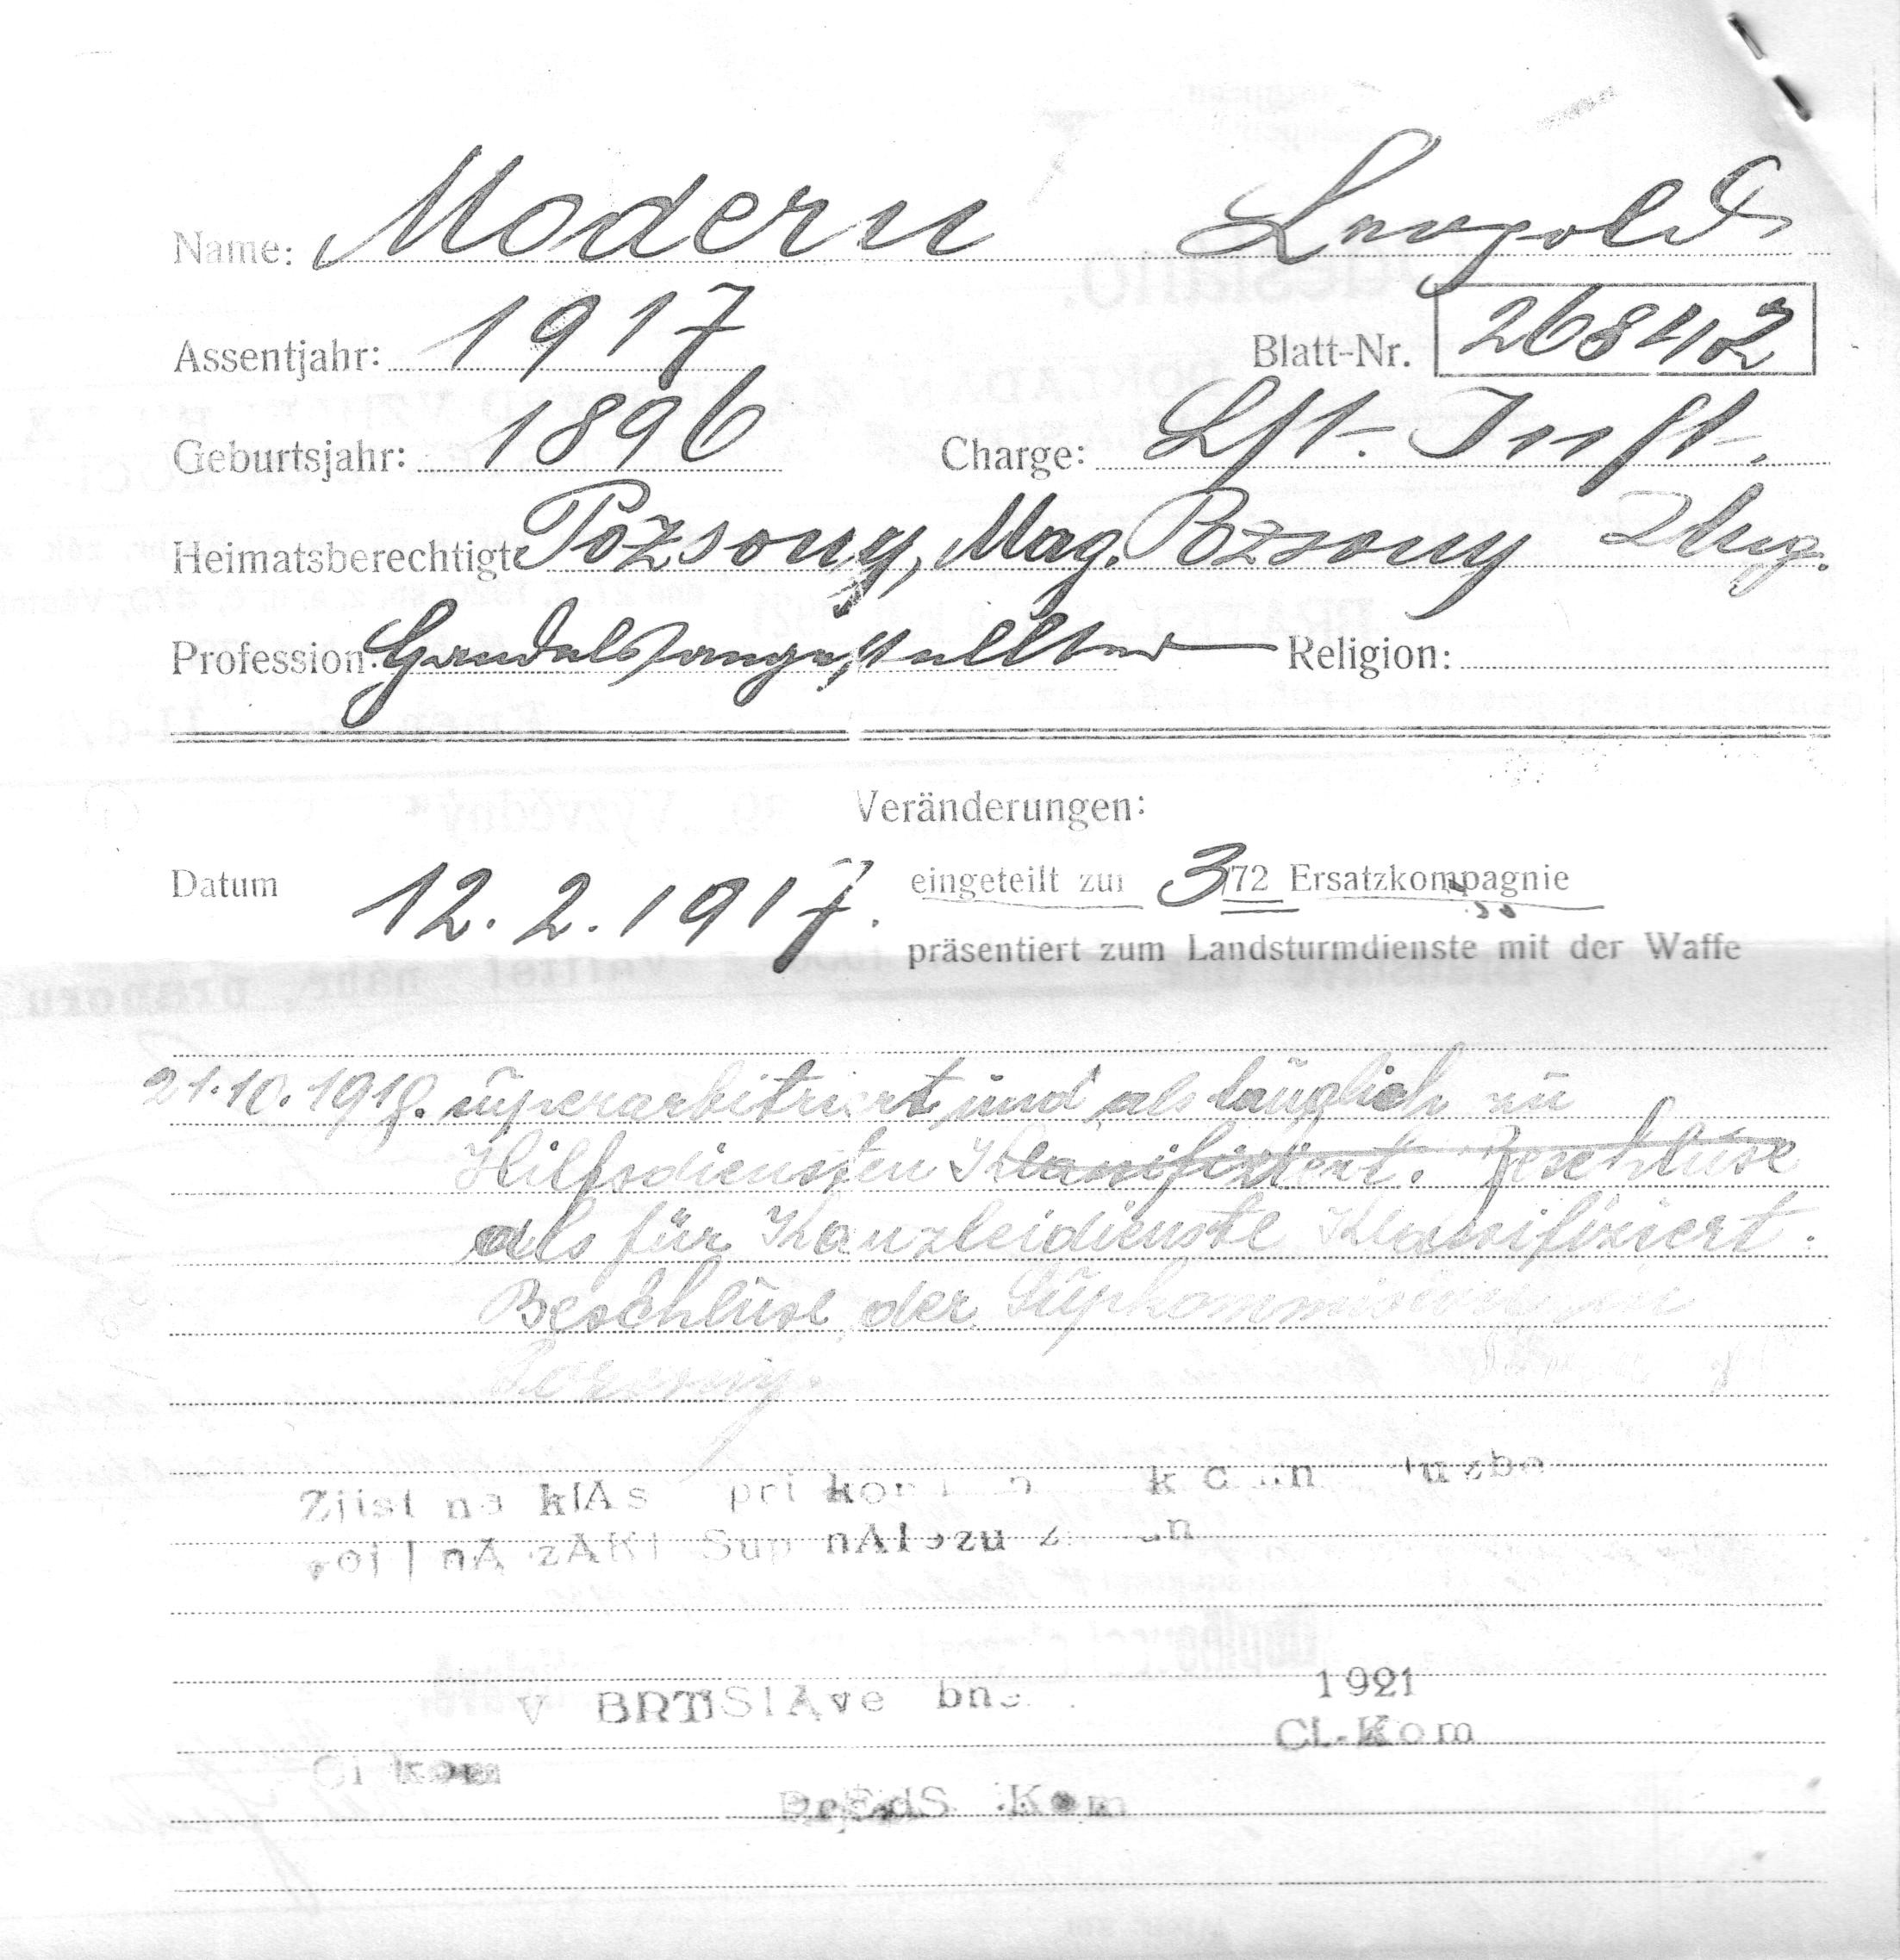 Name: Modern Leopold
Assentjahr: 1917 Blatt-Nr. 26842
Geburtsjahr: 1896 Charge: Lst. Inft.
Heimatsberechtigt Pozsony, Mag. Pozsony Ung.
Profession: Handelsangestellter Religion:
Veränderungen:
Datum 12. 2. 1917. eingeteilt zur 3/72 Ersatzkompagnie
präsentiert zum Landsturmdienste mit der Waffe
21.10.1918. superarbitriert und als tauglich zu
Hilfsdiensten Klassifiziert. Beschluss
als für Kanzleidienste Klassifiziert.
Beschluss der Supkommission in
Pozsony.
klAs pri
nA zAKl Sup nAlezu
V BRTISlAve 1921
Cl-Kom
Cl kom
PrEdS Kom